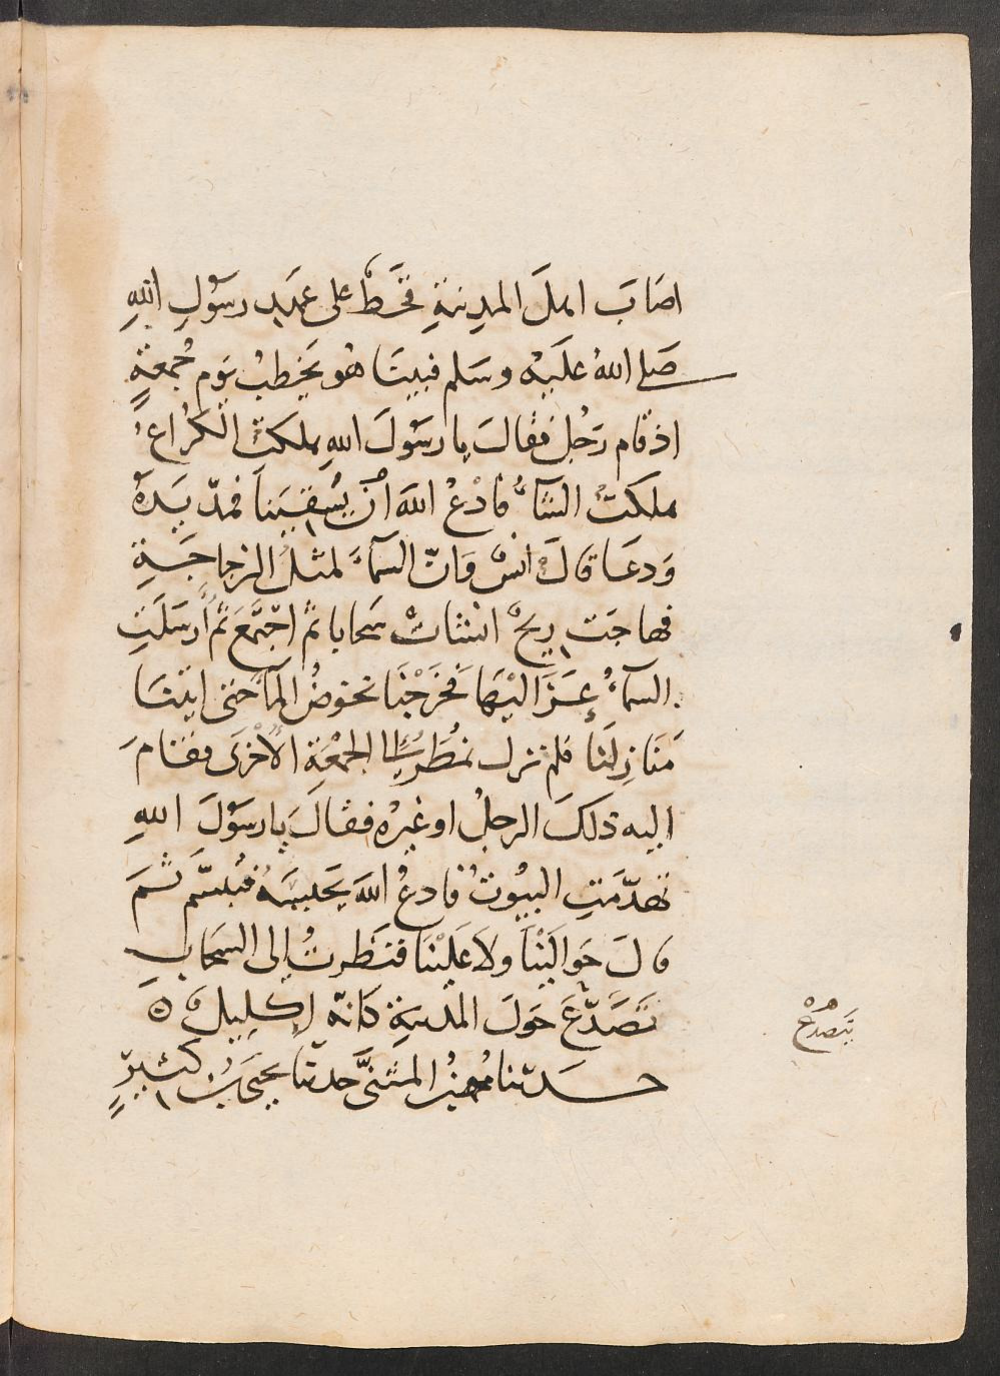 اصَابَ اهلَ المدِينَةِ قَحْطٌ على عَهْدِ رسُولِ اللهِ
صَلى اللهُ علَيْهِ وسَلم فبَيْنَا هُو يَخْطبُ يَوم جُمعَةٍ
اذ قام رَجُل فقالَ يا رسُولَ اللهِ هلكتْ الكُراعُ
هلكتْ الشَّآءُ فادْعُ اللهَ أنْ يَسْقِيَنا فمدّ يَدَهُ
وَدعَا قالَ انسٌ وَانّ السمآءَ لمثلُ الزجاجَةِ
فهاجَت رِيحٌ انشاتْ سَحابا ثمّ اجْتمَعَ ثمّ أرسَلَتِ
السمآءُ عَزَالِيَهَا فخَرَجْنا نخوضُ المآءَ حتى اتينَا
مَنَازِلَنَا فلم نزل نُمْطَر إلى الجمْعَةِ الأُخْرَى فقامَ
اليه ذلكَ الرجلُ او غيرُه فقالَ يا رسُولَ اللهِ
تهدّمَتِ البيُوتُ فادعُ اللهَ يَحبِسْهُ فتبسَّم ثمَّ
قالَ حَوالَيْنَا ولا عَليْنَا فنَظَرتُ إلى السَحابِ
تَصَدَّعَ حَولَ المدينةِ كَانّه إكليلٌ ه
يَتَصدّعُ
حدثنا محمدُ بنُ المثنَّى حدثنا يحيَى بنُ كثيرٍ